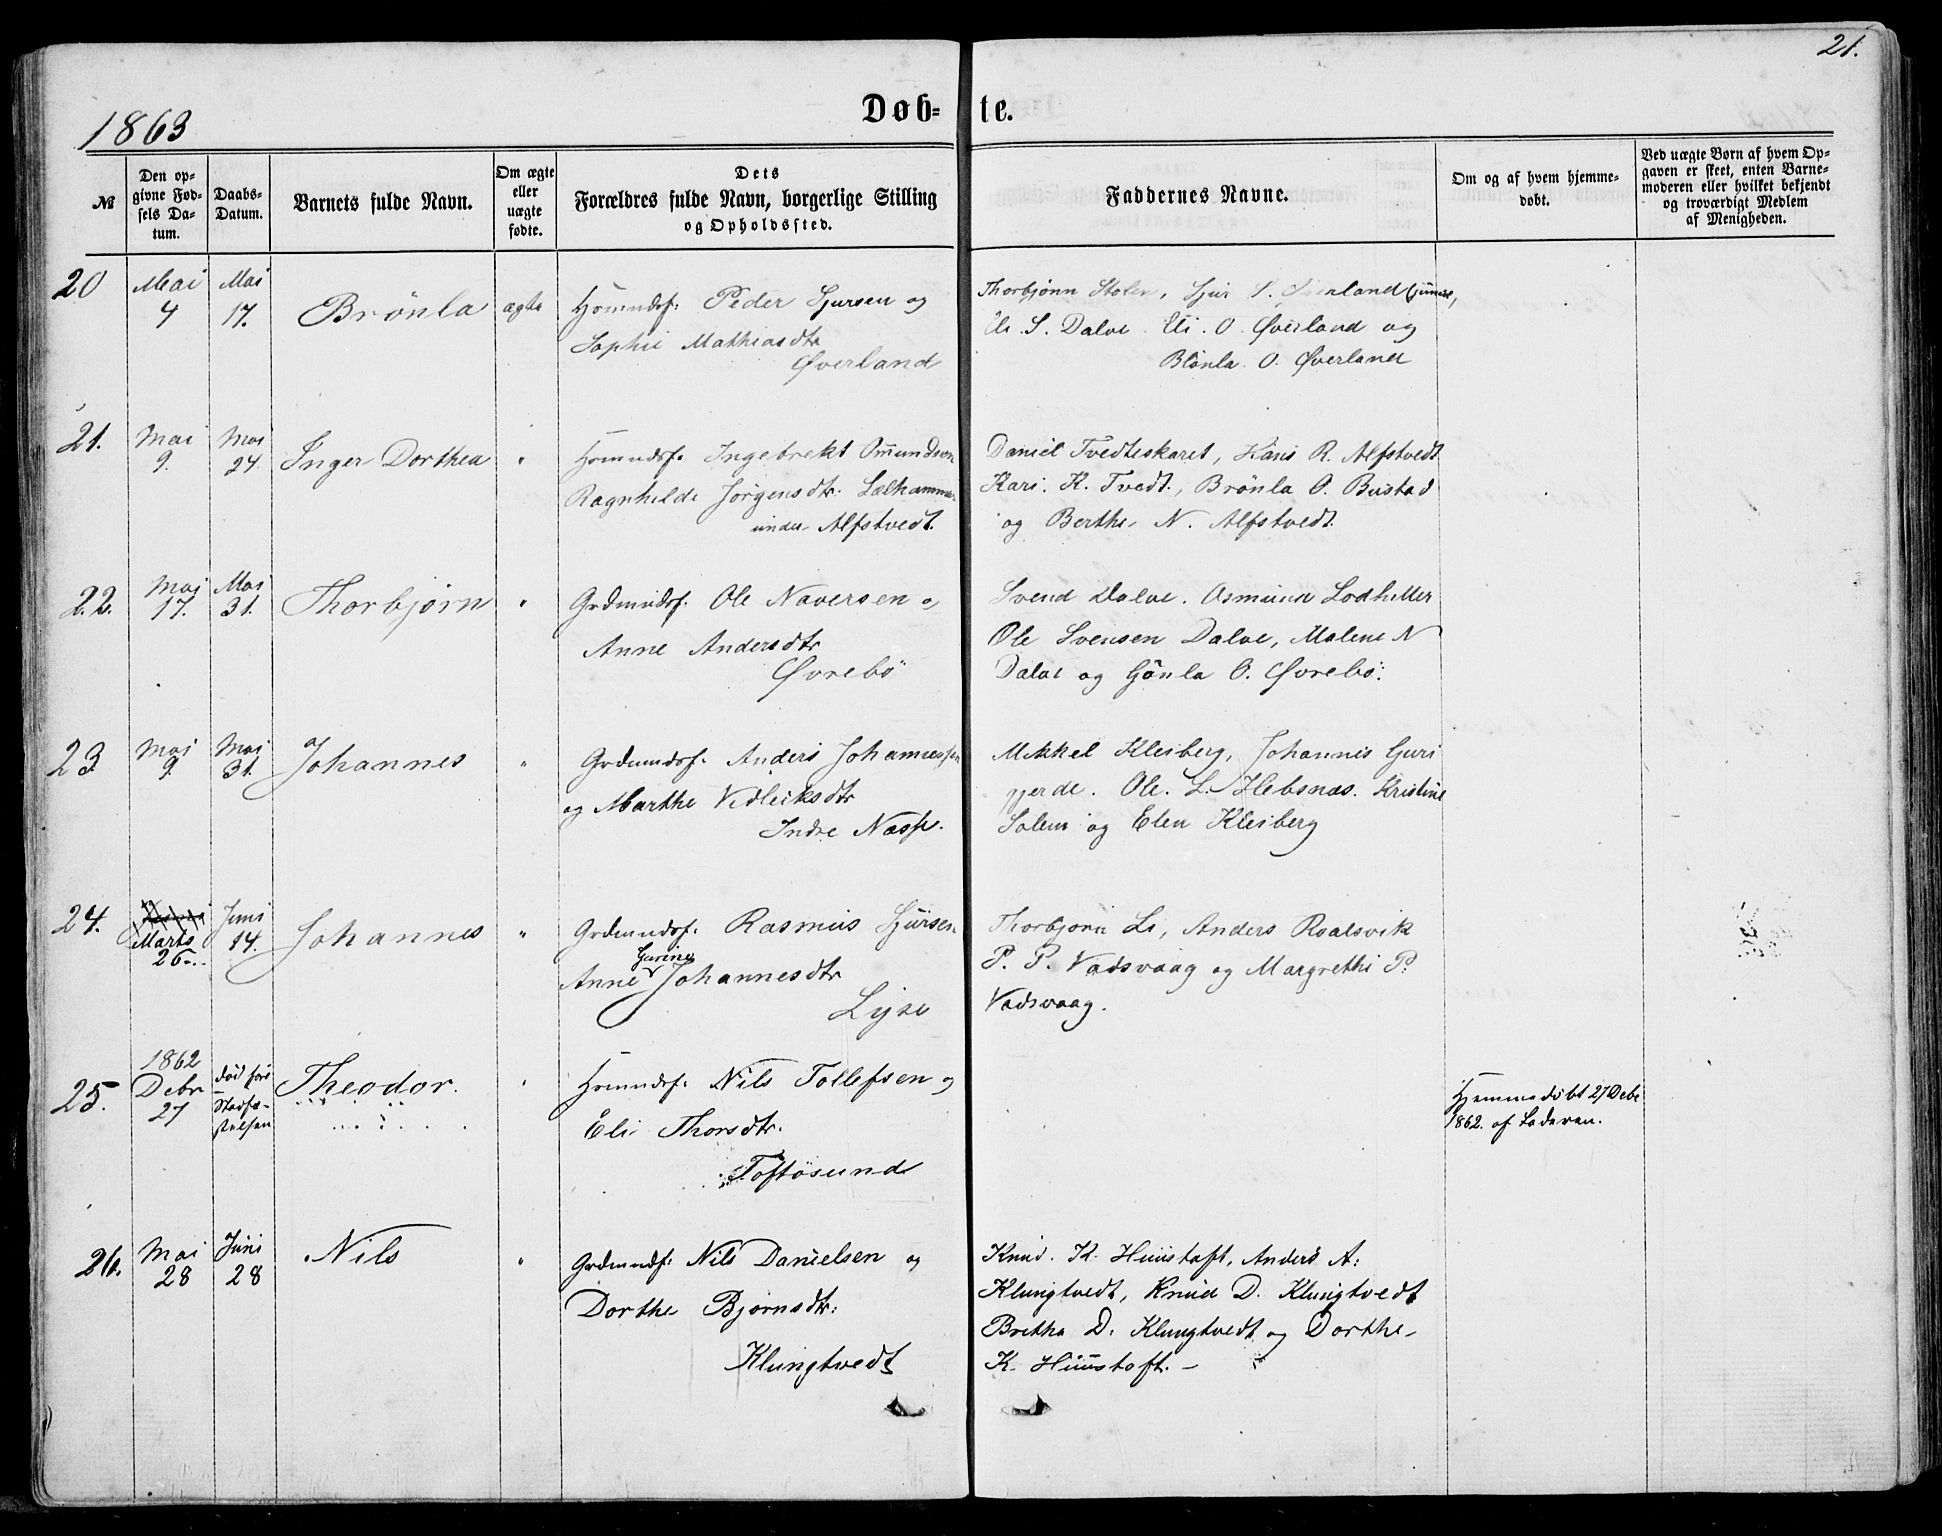 21.
1863
Døb- te.
№
Den op-
givne Fød-
sels Da-
tum.
Daabs-
Datum.
Barnets fulde Navn.
Om ægte
eller
uægte
fødte.
Dets
Forældres fulde Navn, borgerlige Stilling
og Opholdssted.
Faddernes Navne.
Om og af hvem hjemme-
døbt.
Ved uægte Børn af hvem Op-
gaven er skeet, enten Barne-
moderen eller hvilket bekjendt
og troværdigt Medlem
af Menigheden.
20
Mai
4
Mai
17.
Brönla
ægte
Hsmndsf: Peder Sjursen og
Sophie Mathiasdtr
Øverland
Thorbjönn Stolen, Sjur S. Øverland
S. Dalve. Eli. O. Øverland og
Blönla. O. Øverland
21.
Mai
9.
Mai
24.
Inger Dorthea
"
Hsmndsf. Ingebrekt Omundsen
Ragnhilde Jörgensdtr.
under Alfstvedt.
Daniel Tvedteskaret, Hans R. Alfstvedt
Kari. K. Tvedt., Brönla O. Bustad
og Berthe N. Alfstvedt.
22.
Mai
17.
Mai
31.
Thorbjörn
"
Grdmndsf. Ole Naversen o
Anne Andersdtr
Øvrebö
Svend Dalve. Osmund Lodhiller
Ole Svensen Dalve, Malene N
Dalve og Gönla O. Øvrebö:
23
Mai
9.
Mai
31.
Johannes
"
Grdmndsf. Anders Johannessen
og Marthe Vidleiksdtr
Indre Næss.
Mikkel Kleiberg, Johannes Guri
gjerde. Ole. L. Hebsnæs. Kristine
Solem og Elen Kleiberg
24.
Marts
26...
Juni
14.
Johannes
"
Grdmndsf. Rasmus Sjursen
Gurine
Anne Johannesdtr
Lyse
Thorbjörn Li, Anders Roalsvik
P. P. Vadsvaag og Margrethe P.
Vadsvaag.
25.
1862
Debr
27
död före
Stadfæ-
stelsen
Theodor.
"
Hsmndsf. Nils Tollefsen o
Eli Thorsdtr.
Toftösund
Hjemmedöbt 27 Debr
1862. af Læderen.
26.
Mai
28
Juni
28
Nils
"
Grdmndsf. Nils Danielsen og
Dorthe Bjornsdtr:
Klungtvedt
Knud. K. Huustoft, Anders A:
Klungtvedt, Knud D. Klungtvedt
Britha D. Klungtvedt og Dorthe
K. Huustoft. -